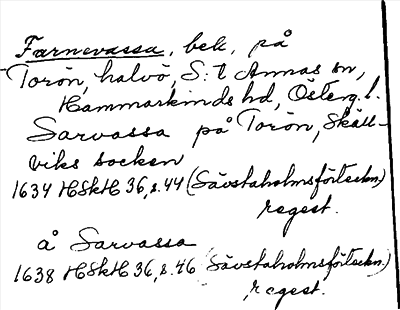 Farnevassa, bek, på
Torön, halvö, S:t Annas sn,
Hammarkinds hd, Österg.l.
Sarvassa på Torön, Skäll-
viks socken
1634 HSkH 36, s. 44 (Sävstaholmsförteckn.)
regest.
å Sarvassa
1638 HSkH 36, s. 46 (Sävstaholmsförteckn.)
regest.